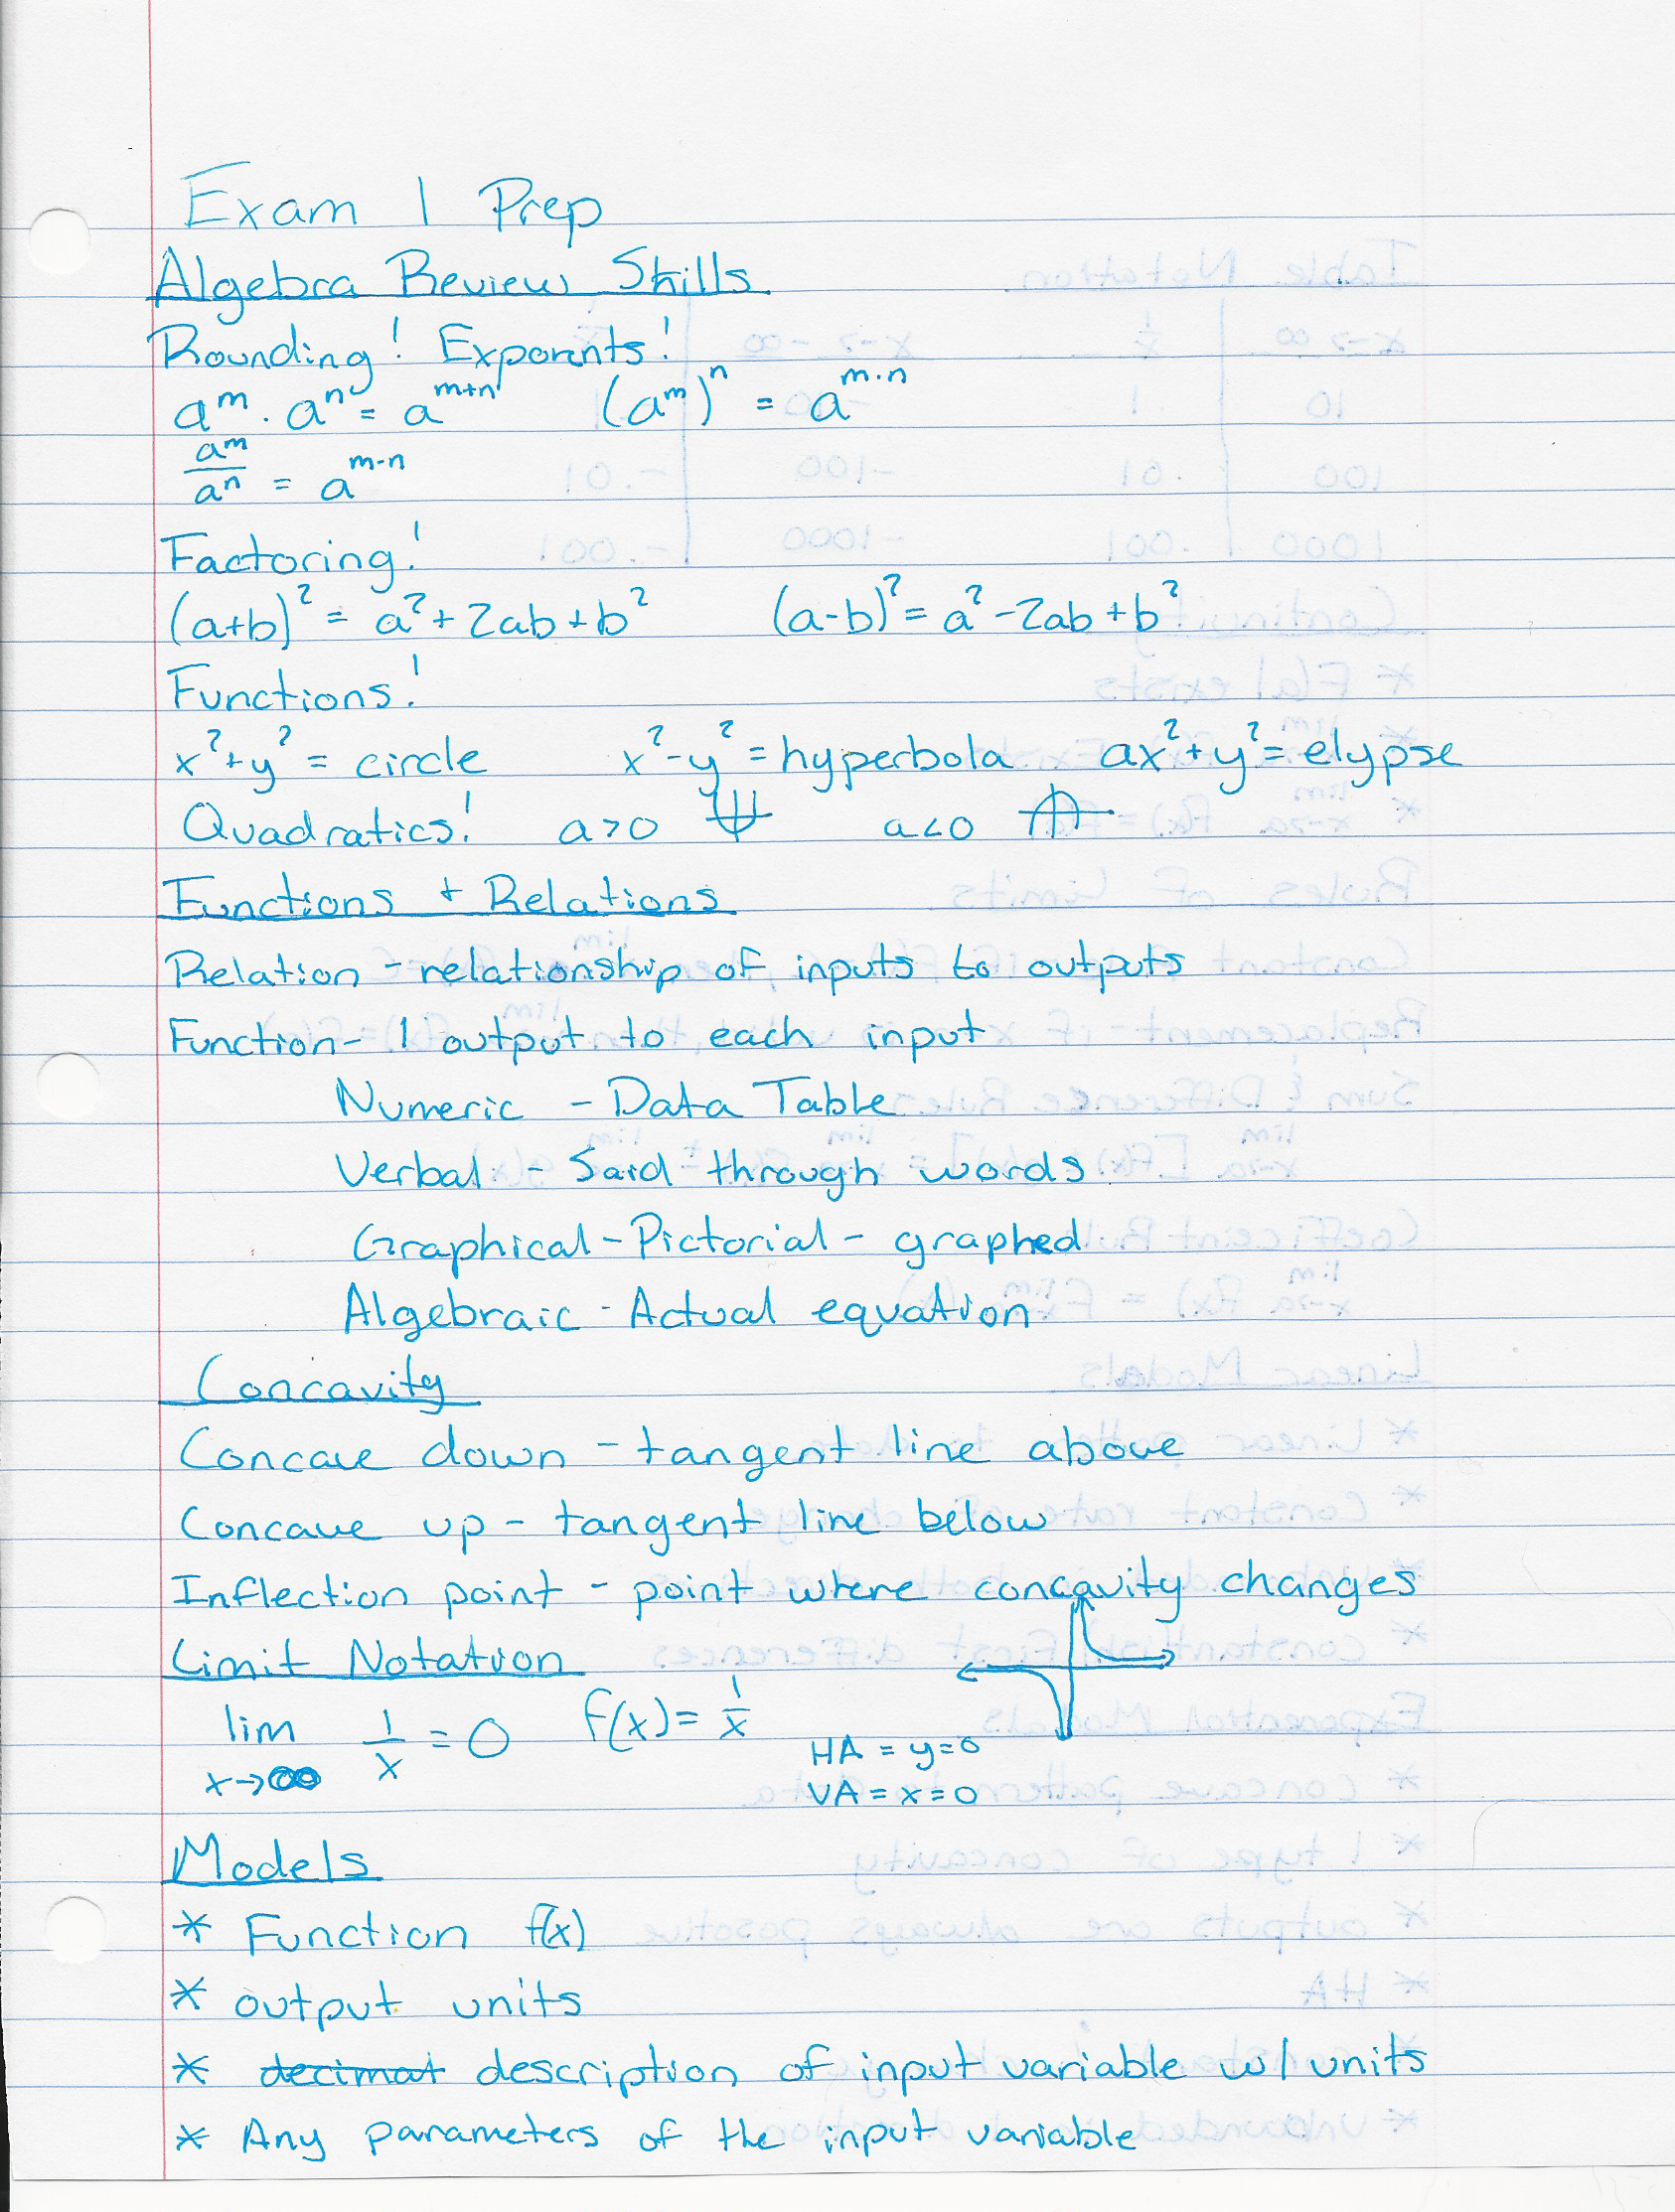 Exam 1 Prep
Algebra Review Skills
Rounding! Exponents!
aᵐ · aⁿ = aᵐ⁺ⁿ (aᵐ)ⁿ = aᵐ·ⁿ
aᵐ/aⁿ = aᵐ⁻ⁿ
Factoring!
(a+b)² = a² + 2ab + b² (a-b)² = a² - 2ab + b²
Functions!
x² + y² = circle x² - y² = hyperbola ax² + y² = elypse
Quadratics! a>0 a<0
Functions + Relations
Relation - relationship of inputs to outputs
Function - 1 output to each input
Numeric - Data Table
Verbal - Said through words
Graphical - Pictorial - graphed
Algebraic - Actual equation
Concavity
Concave down - tangent line above
Concave up - tangent line below
Inflection point - point where concavity changes
Limit Notation
lim x→∞ 1/x = 0 f(x) = 1/x
HA = y=0
VA = x=0
Models
* Function f(x)
* output units
* decimat description of input variable w/ units
* Any parameters of the input variable